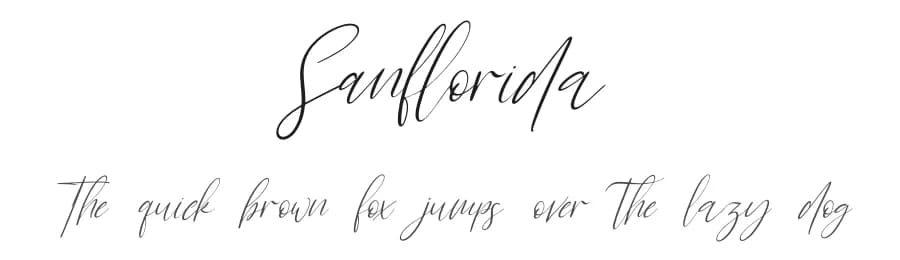 Sanflorida
The quick brown fox jumps over The lazy dog